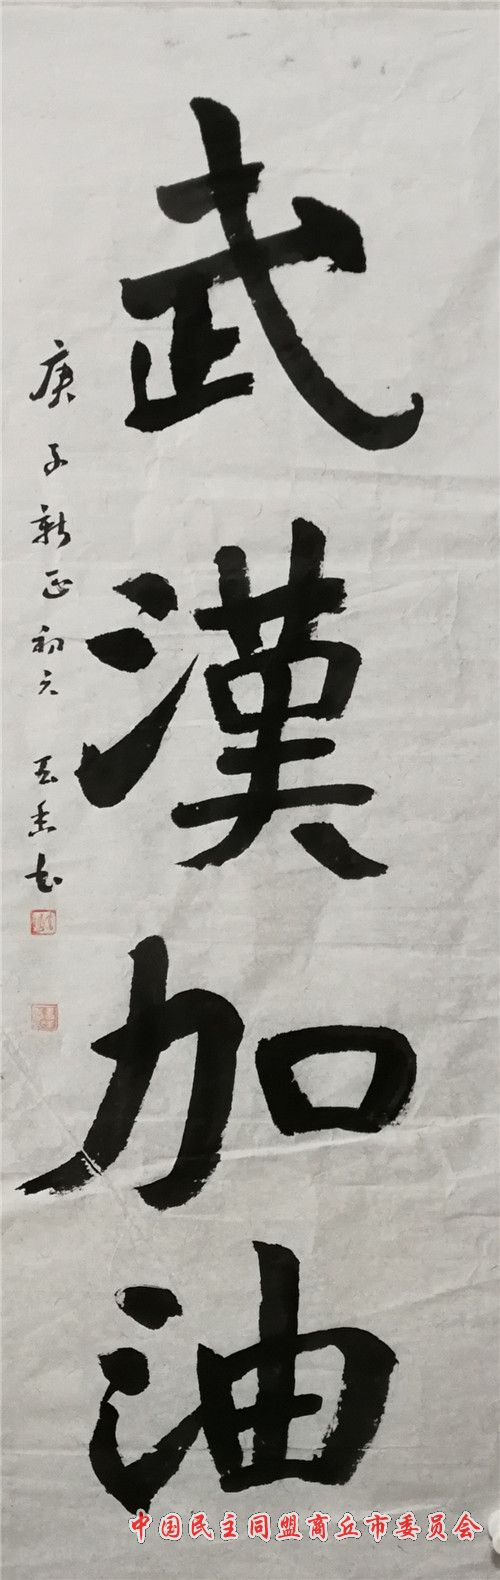 武漢加油
庚子新正初六
中国民主同盟商丘市委员会